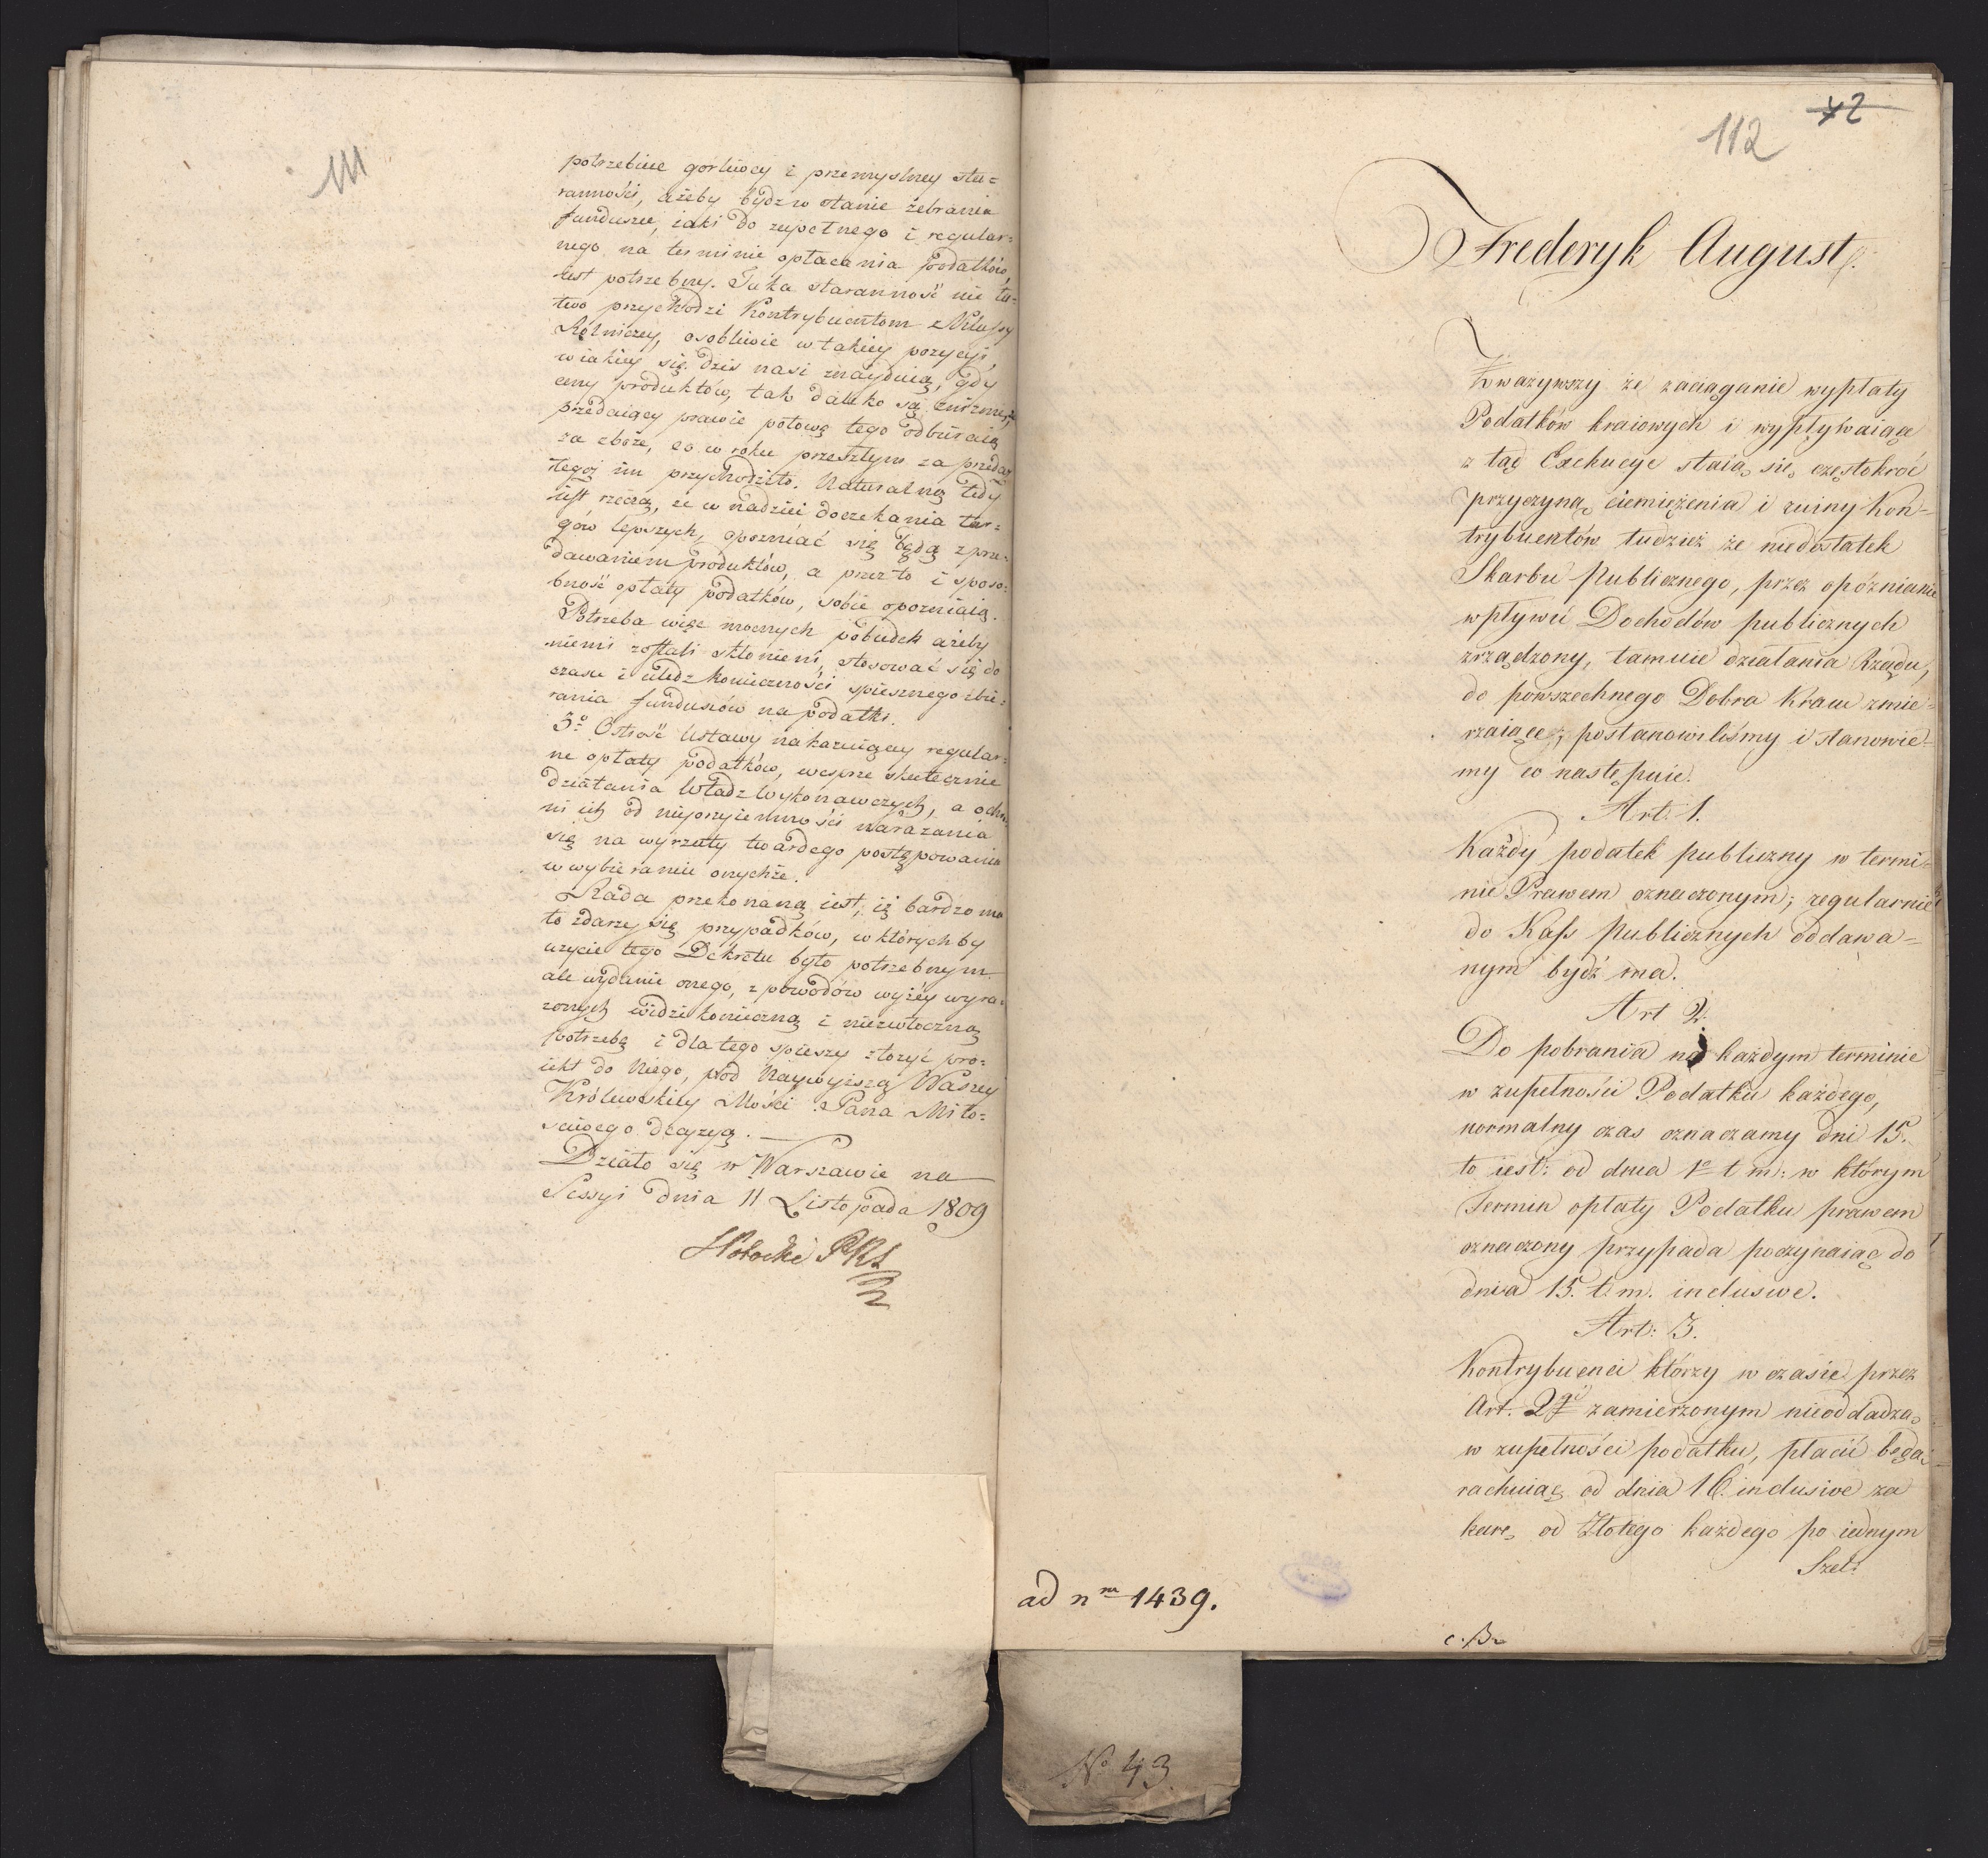 111
potrzebuie gorliwey i przemyslney sta=
ranności, ażeby bydz w stanie zebrania
funduszu, iaki do zupełnego i regular=
nego na terminie opłacania podatków,
iest potrzebny. Taka staranność nie ła=
two przychodzi Kontrybuentom z Klassy
Rolniczey, osobliwie w takiey pozycyi,
w iakiey się dzis nasi znayduią, gdy
ceny produktów, tak daleko są zniżone, iż
przedaiący prawie połowę tego odbieraią
za zboże, co w roku przeszłym za przedaż
tegoż im przychodziło. Naturalną tedy
iest rzeczą, że w nadziei doczekania tar=
gów lepszych, opozniać się będą z prze=
dawaniem produktów, a przez to i sposo=
bność opłaty podatków, sobie opozniaią.
Potrzeba więc mocnych pobudek ażeby
niemi zostali skłonieni, stosować się do
czasu i uledz konieczności spiesznego zbie=
rania funduszów na podatki.
3o Ostrość Ustawy nakazuiącey regular=
ne opłaty podatków, wesprze skutecznie
działania Władz Wykonawczych, a ochro=
ni ich od nieprzyiemności narażania
się na wyrzuty twardego postępowania
w wybieraniu onychże.
Rada przekonaną iest, iż bardzo ma
ło zdarzy się przypadków, w których by
użycie tego Dekretu było potrzebnym
ale wydanie onego, z powodów wyżey wyra=
żonych widzi konieczną i niezwłoczną
potrzebę i dla tego spieszy złożyć pro=
iekt do Niego, pod Naywyższą Waszey
Królewskiey Mości Pana Miło=
sciwego decyzyą.
Działo się w Warszawie na
Sessyi dnia 11 Listopada 1809
Potocki PRS
42
112
Frederyk August.
Zważywszy że zaciąganie wypłaty
Podatków kraiowych i wypływaiące
z tąd Exekucye staią się częstokroć
przyczyną ciemiężenia i ruiny Kon=
trybuentów tudzież że niedostatek
Skarbu Publicznego, przez opóznianie
wpływu Dochodów publicznych
zrządzony, tamuie działania Rządu,
do powszechnego Dobra Kraiu zmie=
rzaiące; postanowiliśmy i stanowie=
my co następuie.
Art: 1.
Każdy podatek publiczny w termi=
nie Prawem oznaczonym; regularnie
do Kass Publicznych oddawa=
nym bydź ma.
Art 2.
Do pobrania na każdym terminie
w zupełności Podatku każdego,
normalny czas oznaczamy dni 15.
to iest: od dnia 1o t. m: w którym
Termin opłaty Podatku prawem
oznaczony przypada poczynaiąc do
dnia 15. t. m. inclusive.
Art: 3.
Kontrybuenci którzy w czasie przez
Art. 2gi zamierzonym nieoddadzą
w zupełności podatku, płacić będą
rachuiąc od dnia 16. inclusive za
karę, od Złotego każdego po iednym
Szel:
ad nm 1439.
No 43.